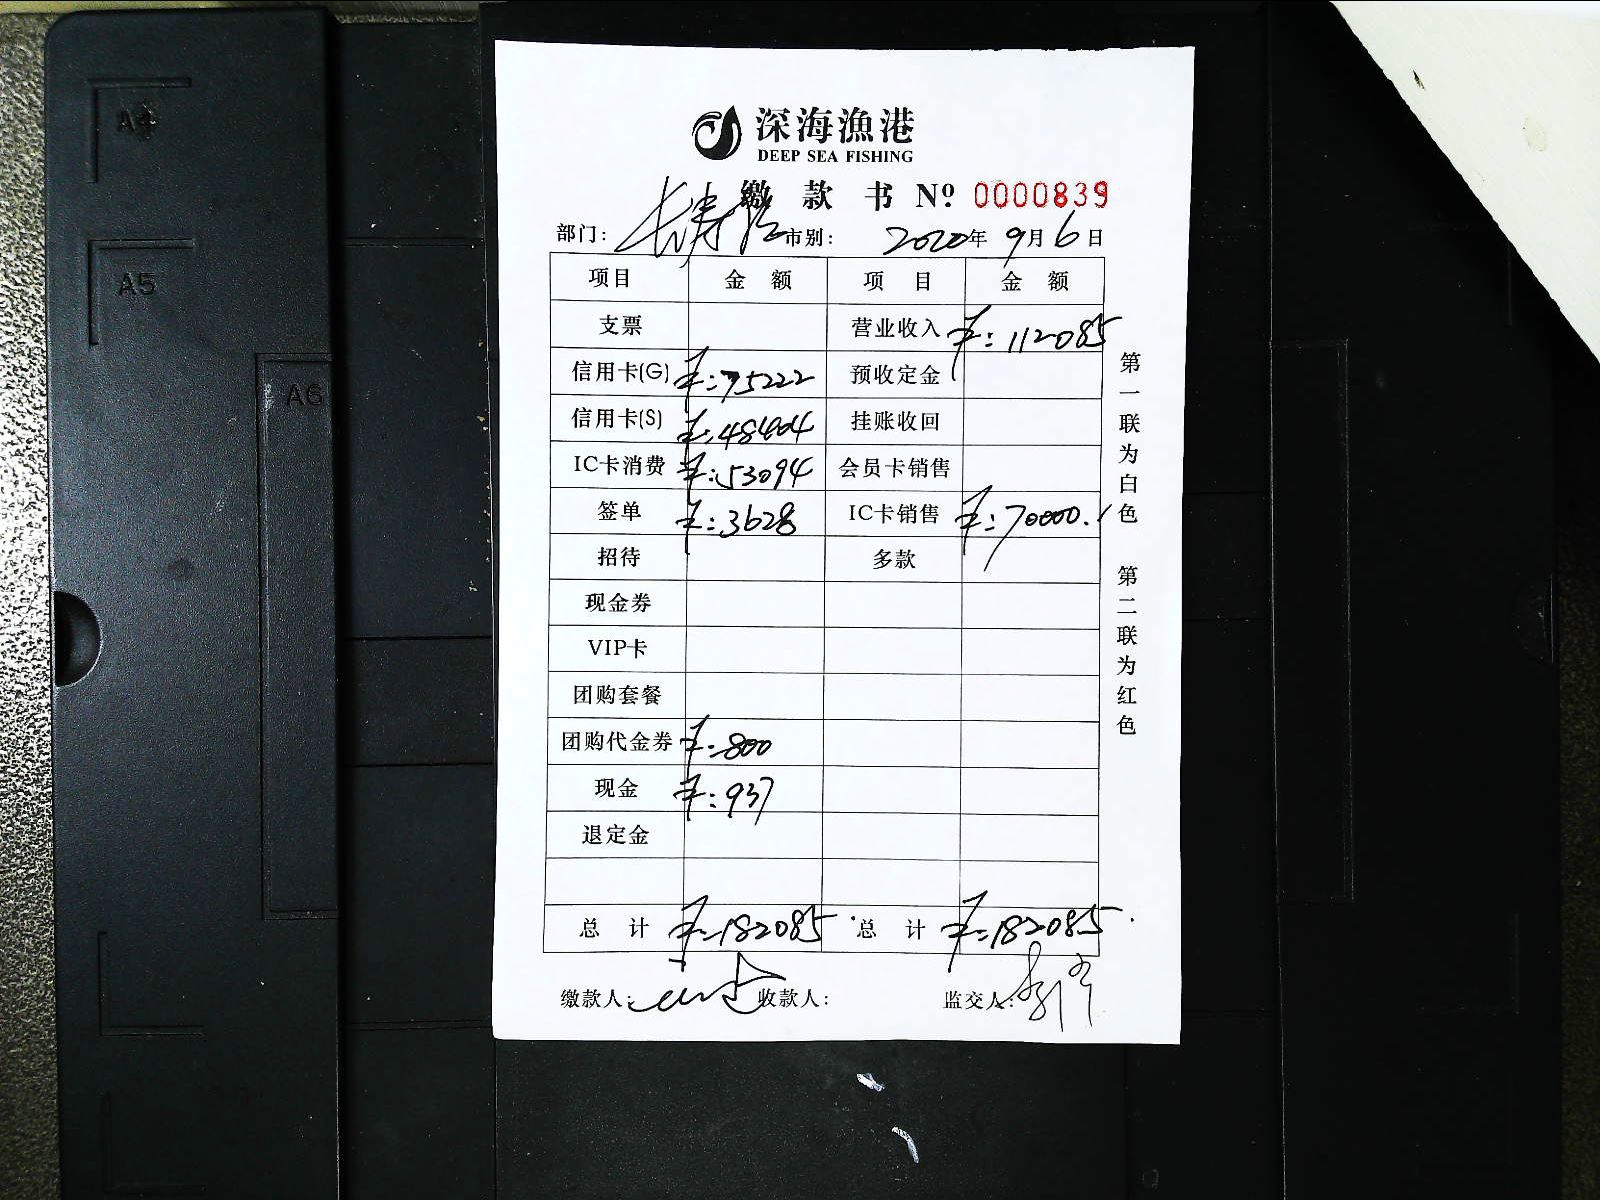 A4
A5
A6
深海渔港
DEEP SEA FISHING
缴 款 书 Nº 0000839
部门：长寿路 市别： 2020年 9月 6日
项目 金 额 项 目 金 额
支票 营业收入 ￥：112085
信用卡(G) ￥：75222 预收定金
信用卡(S) ￥：48404 挂账收回
IC卡消费 ￥：53094 会员卡销售
签单 ￥：3628 IC卡销售 ￥：70000.
招待 多款
现金券
VIP卡
团购套餐
团购代金券 ￥：800
现金 ￥：937
退定金
总 计 ￥：182085 总 计 ￥：182085
缴款人： 收款人： 监交人：
第一联为白色 第二联为红色